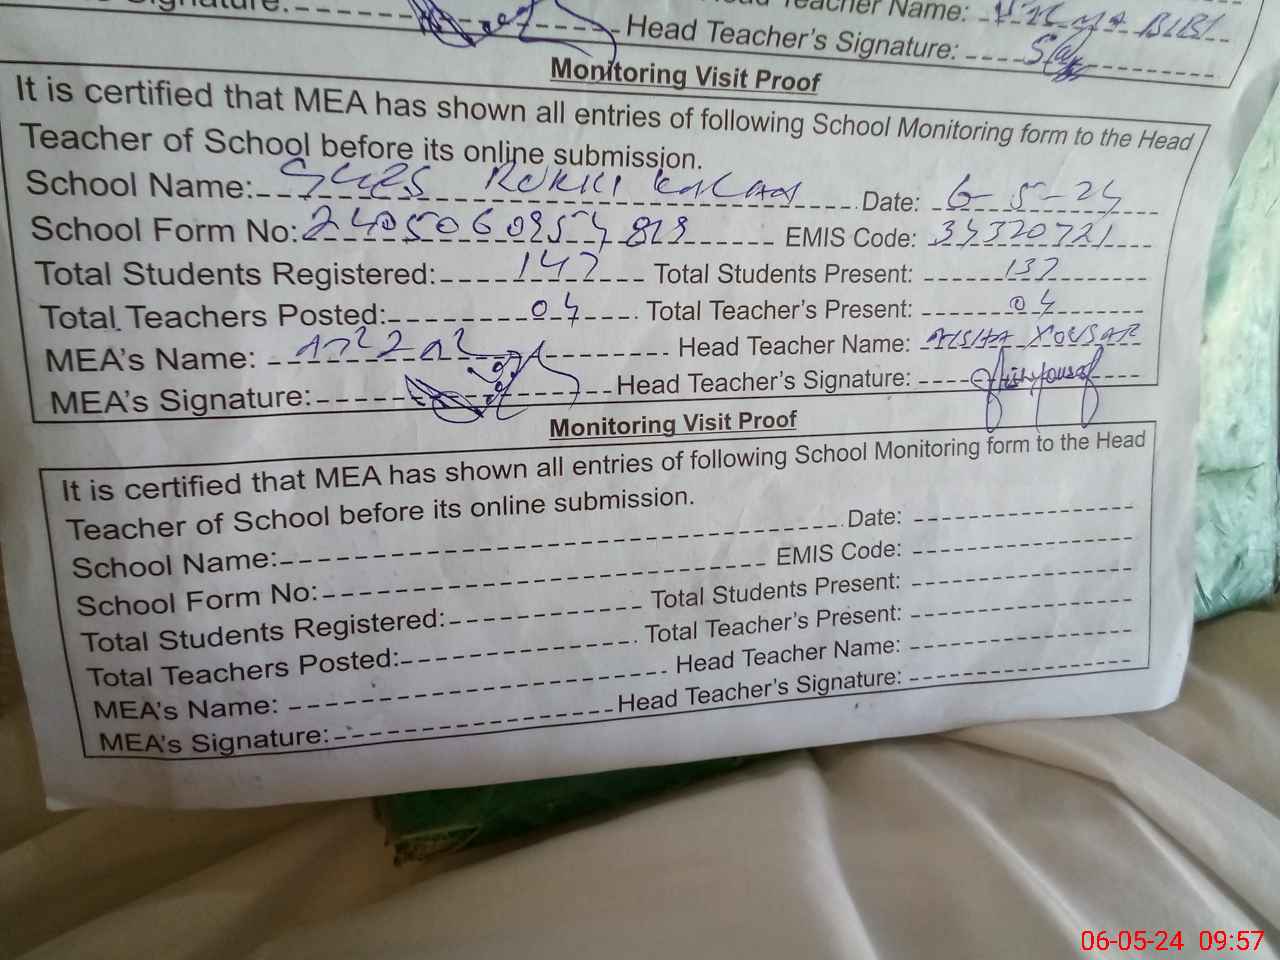 Signature: Head Teacher Name: BIBI
Head Teacher's Signature:
Monitoring Visit Proof
It is certified that MEA has shown all entries of following School Monitoring form to the Head
Teacher of School before its online submission.
School Name: Date: 6-5-24
School Form No: EMIS Code: 34320721
Total Students Registered: 147 Total Students Present: 137
Total Teachers Posted: 04 Total Teacher's Present: 04
MEA's Name: Head Teacher Name: AISHA
MEA's Signature: Head Teacher's Signature:
Monitoring Visit Proof
It is certified that MEA has shown all entries of following School Monitoring form to the Head
Teacher of School before its online submission.
School Name: Date:
School Form No: EMIS Code:
Total Students Registered: Total Students Present:
Total Teachers Posted: Total Teacher's Present:
MEA's Name: Head Teacher Name:
MEA's Signature: Head Teacher's Signature:
06-05-24 09:57